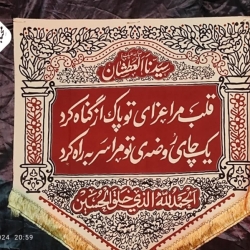 سیدنا العطشان
قلب مرا عزای تو پاک از گناه کرد
یک چای روضه‌ی تو مرا سر به راه کرد
الحمد لله الذی خلق الحسین
2024 20:59